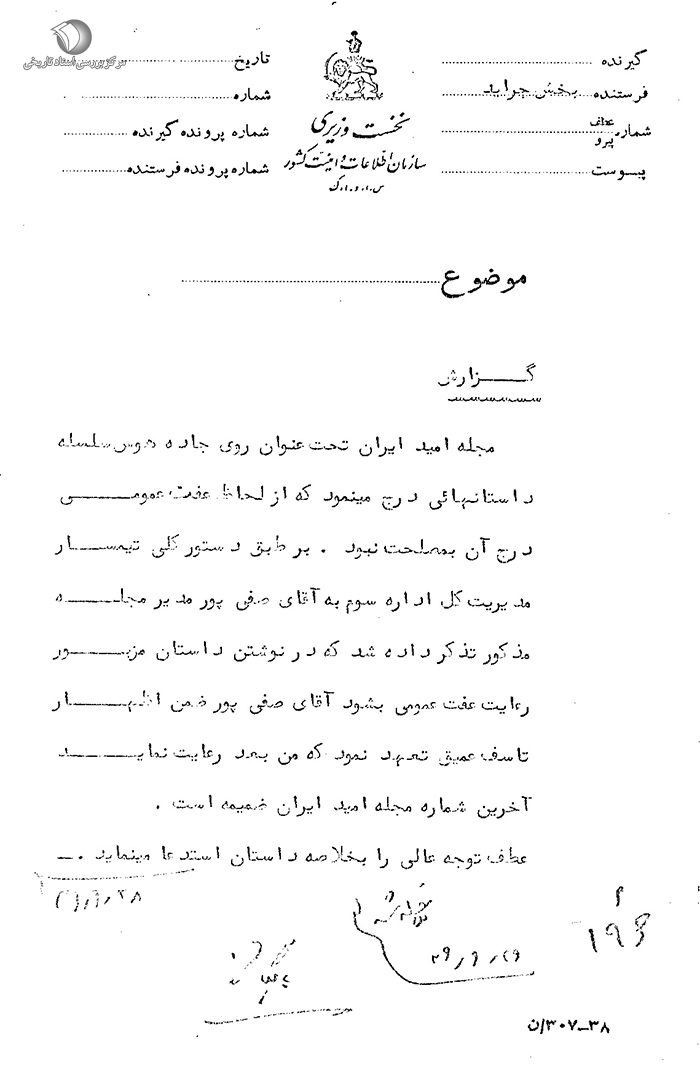 مرکز بررسی اسناد تاریخی
گیرنده
فرستنده بخش جراید
شماره عطف
پیرو
پیوست
نخست وزیری
سازمان اطلاعات و امنیت کشور
س.ا.و.ا.ک
تاریخ
شماره
شماره پرونده گیرنده
شماره پرونده فرستنده
موضوع
گزارش
مجله امید ایران تحت عنوان روی جاده هوس سلسله
داستانهائی درج مینمود که از لحاظ عفت عمومی
درج آن بمصلحت نبود . بر طبق دستور کلی تیمسار
مدیریت کل اداره سوم به آقای صفی پور مدیر مجله
مذکور تذکر داده شد که در نوشتن داستان مزبور
رعایت عفت عمومی بشود آقای صفی پور ضمن اظهار
تاسف عمیق تعهد نمود که من بعد رعایت نماید
آخرین شماره مجله امید ایران ضمیمه است .
عطف توجه عالی را بخلاصه داستان استدعا مینماید .ـ
۳۸ـ۳۰۷/ن